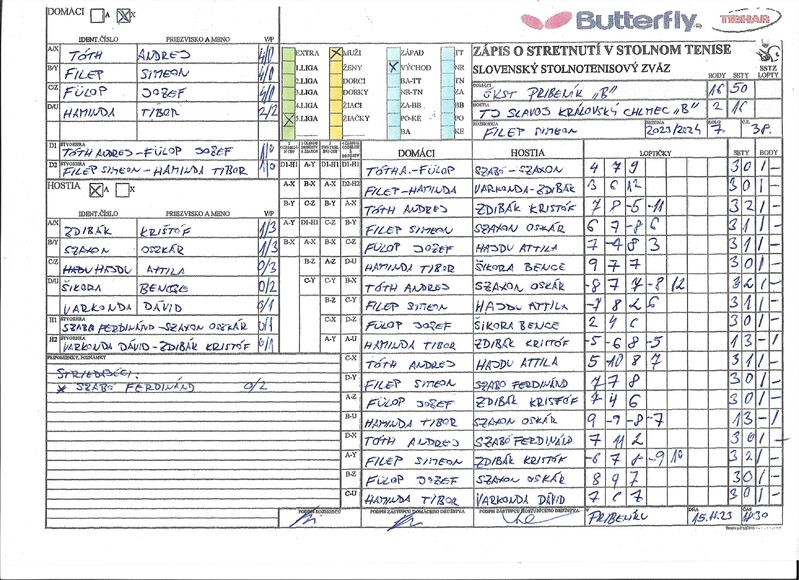 DOMÁCI A X
Butterfly TIBHAR
IDENT.ČÍSLO PRIEZVISKO A MENO V/P
A/X TÓTH ANDREJ 4/0
B/Y FILEP SIMEON 4/0
C/Z FÜLÖP JOZEF 4/0
D/U HAMINDA TIBOR 2/2
D1 ŠTVORHRA TÓTH ANDREJ-FÜLÖP JOZEF 1/0
D2 ŠTVORHRA FILEP SIMEON-HAMINDA TIBOR 1/0
HOSTIA A X
IDENT.ČÍSLO PRIEZVISKO A MENO V/P
A/X ZDIBÁK KRISTÓF 1/3
B/Y SZAXON OSZKÁR 1/3
C/Z HAJDU ATTILA 0/3
D/U ŠIKORA BENCE 0/2
VARKONDA DÁVID 0/1
H1 ŠTVORHRA SZABÓ FERDINÁND-SZAXON OSZKÁR 0/1
H2 ŠTVORHRA VARKONDA DÁVID-ZDIBÁK KRISTÓF 0/1
PRIPOMIENKY, POZNÁMKY
STRIEDAJÚCI:
* SZABÓ FERDINÁND 0/2
EXTRA MUŽI ZÁPAD TT
1.LIGA ŽENY VÝCHOD NR
2.LIGA DORCI BA-TT TN
3.LIGA DORKY NR-TN ZA
4.LIGA ŽIACI ZA-BB BB
5.LIGA ŽIAČKY PO-KE PO
BA KE
ZÁPIS O STRETNUTÍ V STOLNOM TENISE
SLOVENSKÝ STOLNOTENISOVÝ ZVÄZ SSTZ
BODY SETY LOPTY
DOMÁCI ŠKST PRIBENÍK „B" 16 50
HOSTIA TJ SLAVOJ KRÁĽOVSKÝ CHLMEC „B" 2 16
ROZHODCA FILEP SIMEON SEZÓNA 2023/2024 KOLO 7 Č.Z. 38.
DOMÁCI HOSTIA LOPTIČKY SETY BODY
D1-H1 A-Y TÓTH A.-FÜLÖP SZABÓ-SZAXON 4 7 9 3 0 1 -
A-X B-X A-X D2-H2 FILEP-HAMINDA VARKONDA-ZDIBÁK 3 6 12 3 0 1 -
B-Y C-Z B-Y A-X TÓTH ANDREJ ZDIBÁK KRISTÓF 7 8 -5 -11 3 2 1 -
A-Y D1-H1 C-Z B-Y FILEP SIMEON SZAXON OSKÁR 6 7 -8 6 3 1 1 -
B-X A-X D-U C-Z FÜLÖP JOZEF HAJDU ATTILA 7 -4 8 3 3 1 1 -
B-Z A-Z D-U HAMINDA TIBOR ŠIKORA BENCE 9 7 7 3 0 1 -
C-Y B-X A-Y TÓTH ANDREJ SZAXON OSKÁR -8 7 7 -8 12 3 2 1 -
B-Z C-Y FILEP SIMEON HAJDU ATTILA -7 8 2 6 3 1 1 -
C-X D-Z FÜLÖP JOZEF ŠIKORA BENCE 2 4 6 3 0 1 -
A-Y D-X HAMINDA TIBOR ZDIBÁK KRISTÓF -5 -6 8 -5 1 3 - 1
C-X TÓTH ANDREJ HAJDU ATTILA 5 -10 8 7 3 1 1 -
D-Y FILEP SIMEON SZABÓ FERDINÁND 7 7 8 3 0 1 -
A-Z FÜLÖP JOZEF ZDIBÁK KRISTÓF 7 4 6 3 0 1 -
B-U HAMINDA TIBOR SZAXON OSKÁR 9 -9 -8 -7 1 3 - 1
D-X TÓTH ANDREJ SZABÓ FERDINÁND 7 11 2 3 0 1 -
A-Y FILEP SIMEON ZDIBÁK KRISTÓF -6 7 8 -9 10 3 2 1 -
B-Z FÜLÖP JOZEF SZAXON OSKÁR 8 9 7 3 0 1 -
C-U HAMINDA TIBOR VARKONDA DÁVID 7 6 7 3 0 1 -
PODPIS ROZHODCU PODPIS ZÁSTUPCU DOMÁCEHO DRUŽSTVA PODPIS ZÁSTUPCU HOSŤUJÚCEHO DRUŽSTVA V PRIBENÍKU DŇA 15.11.23 ČAS